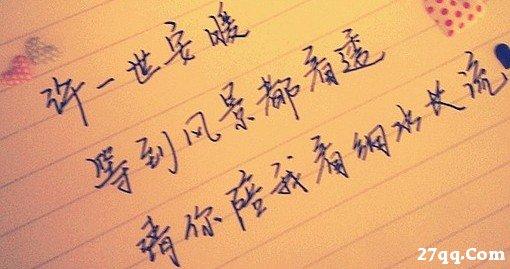 许一世安暖
等到风景都看透
请你陪我看细水长流
27qq.Com